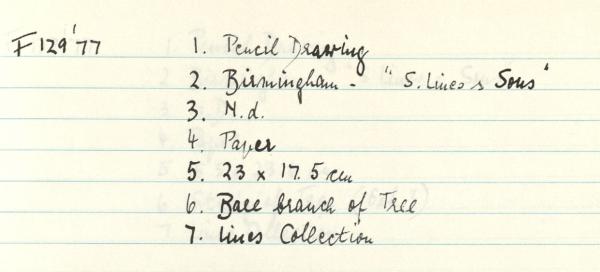 F129'77 1. Pencil Drawing
2. Birmingham - "S. Lines & Sons"
3. N.d.
4. Paper
5. 23 x 17.5 cm
6. Bare branch of Tree
7. Lines Collection